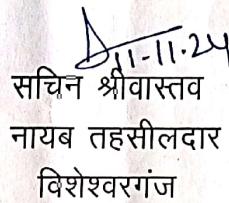 11-11-24
सचिन श्रीवास्तव
नायब तहसीलदार
विशेश्वरगंज